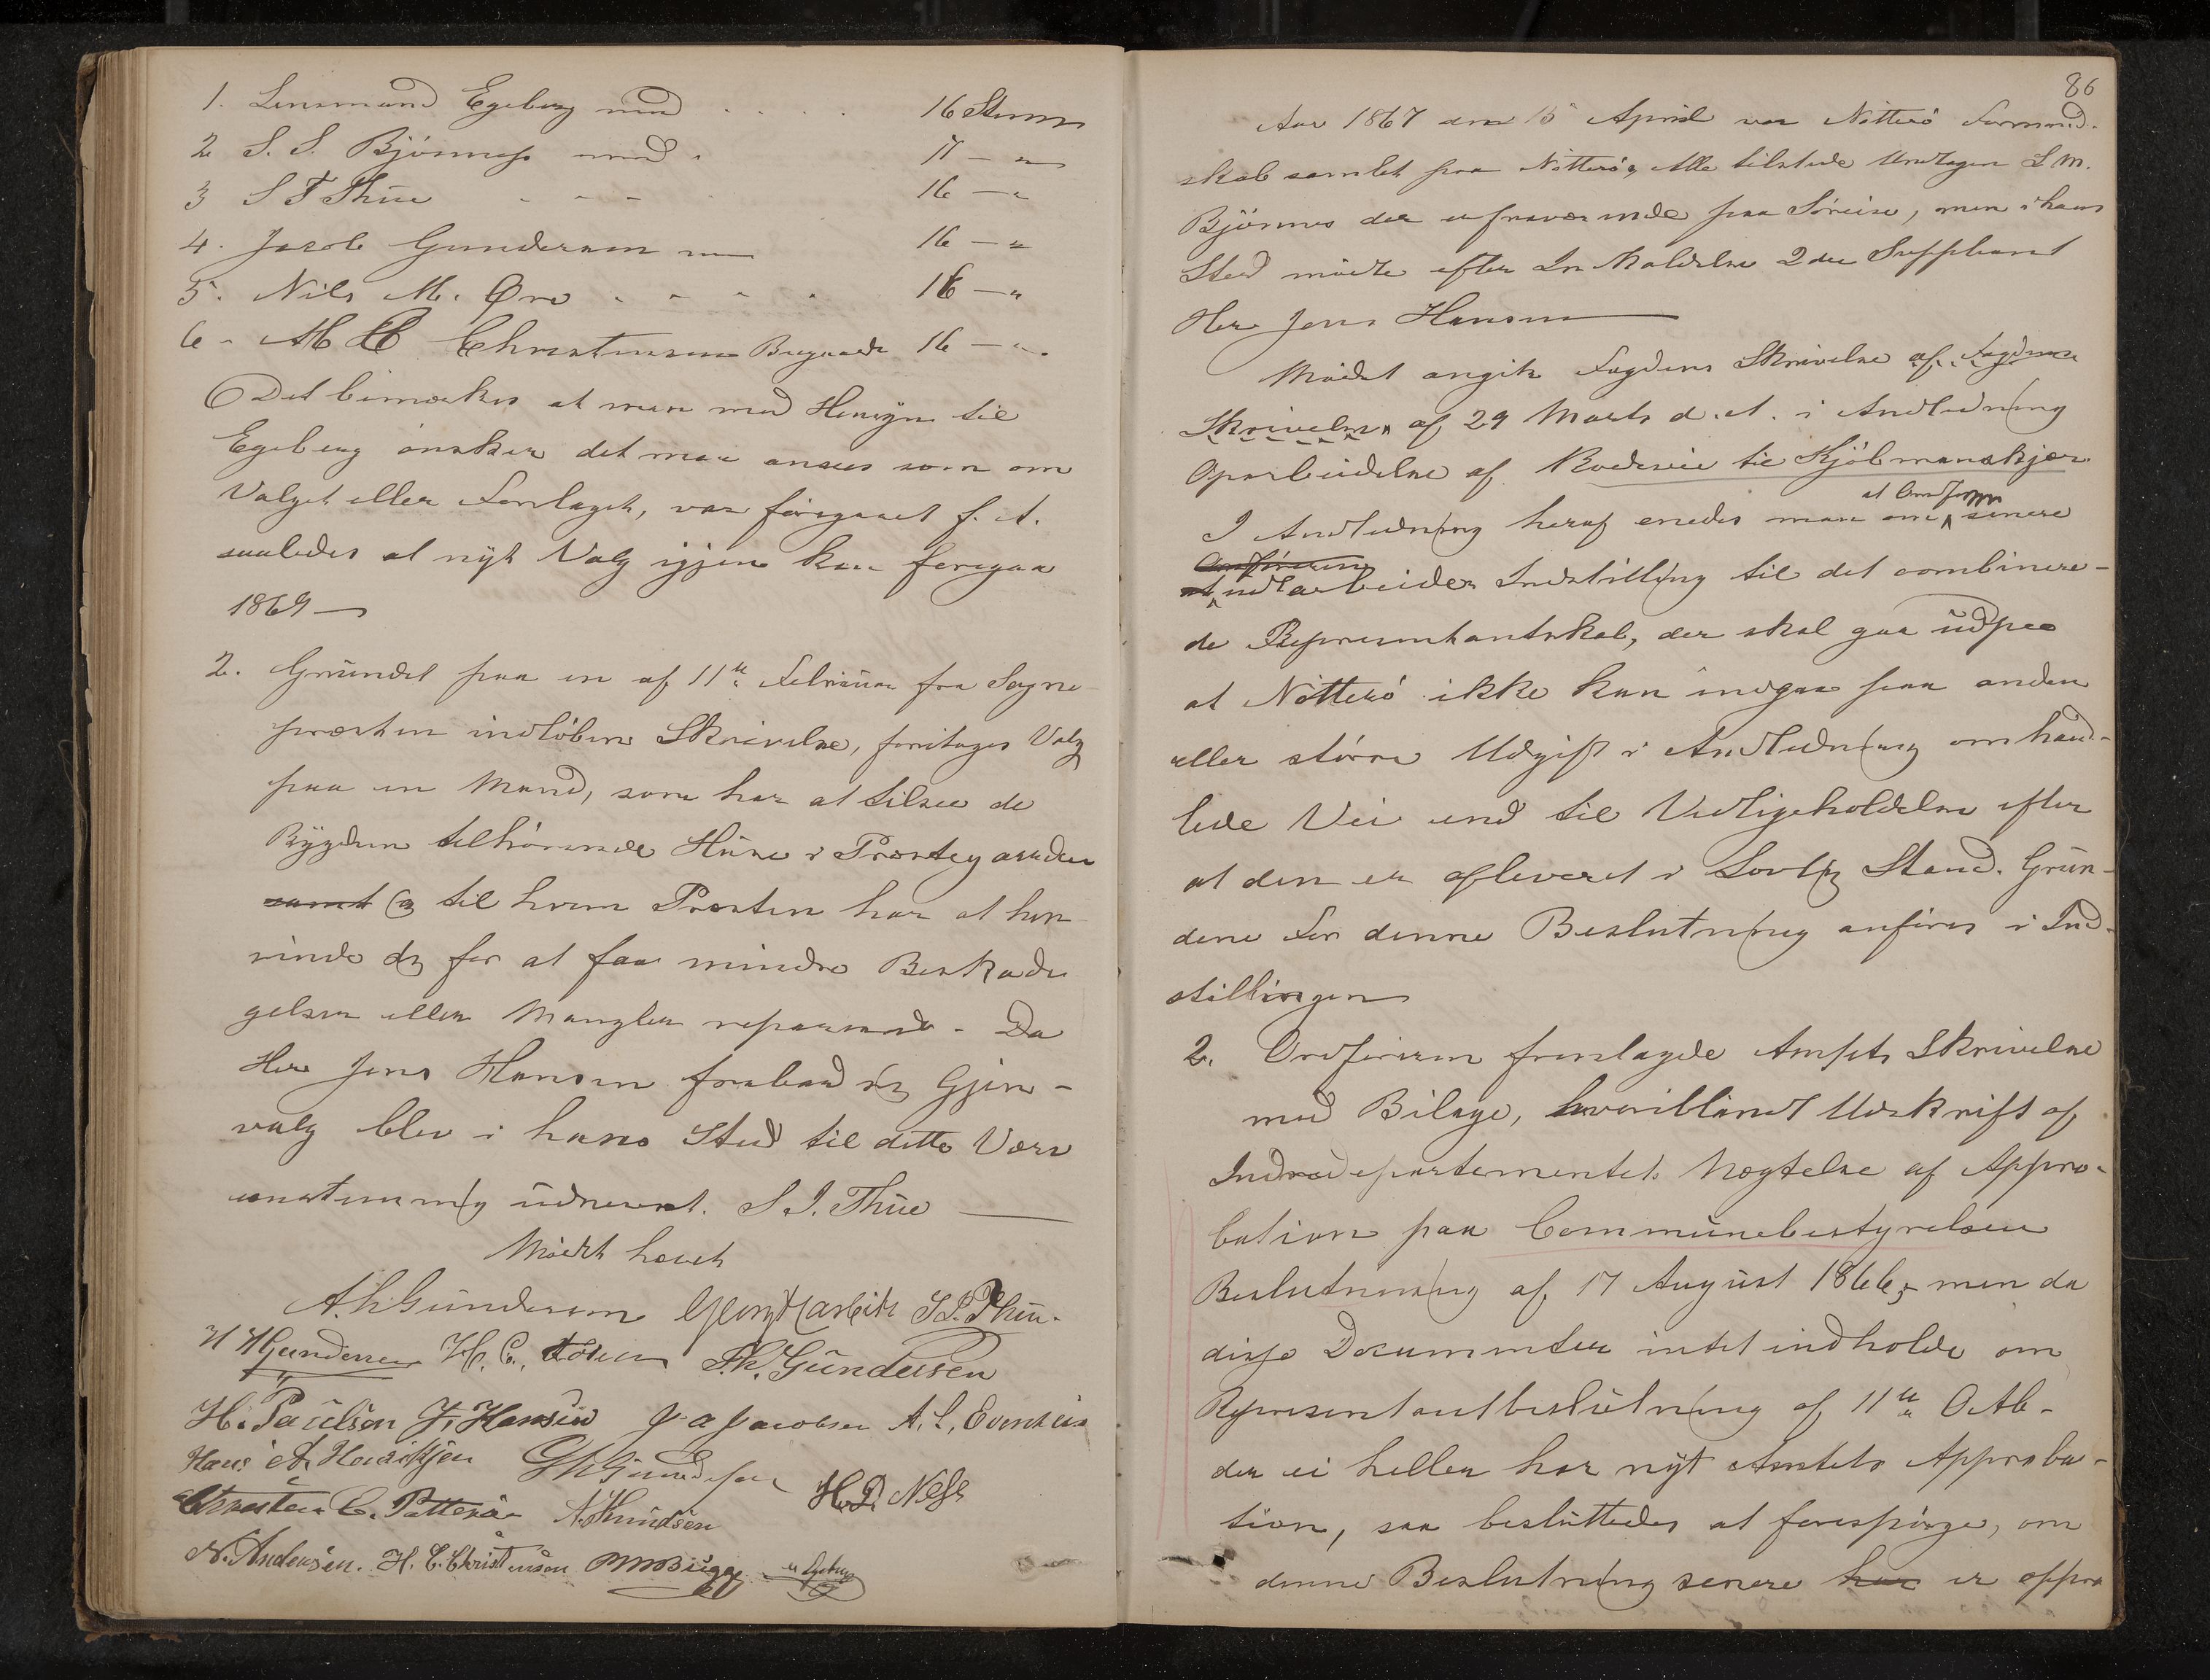 1. Lensmand Egeberg med . . . . 16 Stemmer
2 S. S. Bjönnes med . 17 — "
3 S T Thue - - - 16 — "
4. Jacob Gundersen 16 — "
5. Nils M. Øre - - - . 16 — "
6 - M C Christensen Buegaarde 16 — "
Det bemærkes at man med Hensyn til
Egeberg ønsker det maa ansees som om
Valget eller Forslaget, var foregaaet f. A.
saaledes at nyt Valg igjen kan foregaa
1869 —
2. Grundet paa en af 11te Februar fra Sogne-
præsten indløben Skrivelse, foretages Valg
paa en Mand, som har at tilsee de
Bygden tilhørende Huse i Præstegaarden
samt og til hvem Præsten har at hen-
vende sig for at faa mindre Beskadi-
gelser eller Mangler repareret - Da
Her Jens Hansen frabad sig Gjen-
valg blev i hans Sted til dette Værv
enstemmig udnævnt. S. J. Thue —
Mødet hævet
A. H. Gundersen Georg S. J. Thue.
H Gundersen H. C. Th. Gundersen
H. Paulsen J. Hansen J A Jacobsen A. L. Evensen
Hans A. Henriksen G Gundersen H. P. Ness
Christen C. A. Knudsen
N. Andersen. H. C. Christensen Bugge Egeberg
86
Aar 1867 den 15 April var Nötterö Formand-
skab samlet paa Nötterö, Alle tilstede Undtagen S M.
Björnes der er fraværende paa Söreise, men i hans
Sted mödte efter Indkaldelse 2den Suppleant
Her Jens Hansen
Mödet angik Fogdens Skrivelse af Fogdens
Skrivelse af 29 Marts d. A. i Anledning
Oparbeidelse af Rodevei til Kjöbmanskjær
I Anledning heraf enedes man om at Ordföreren senere
Ordföreren
at udarbeider Indstilling til det combinere-
de Representantskab, der skal gaa ud paa
at Nötterö ikke kan indgaa paa anden
eller større Udgift i Anledning omhand-
lede Vei end til Vedligeholdelse efter
at den er afleveret i Lovlig Stand. Grun-
dene for denne Beslutning anføres i Ind-
stillingen
2. Ordföreren fremlagde Amtets Skrivelse
med Bilage, hvoriblandt Udskrift af
Indredepartementets Nægtelse af Appro-
bation paa Communebestyrelsen
Beslutning af 17 August 1866, men da
disse Documenter intet indholde om
Representantbeslutning af 11te Octb-
der ei heller har nyt Amtets Approba-
tion, saa besluttedes at forespörge, om
denne Beslutning senere har er appro